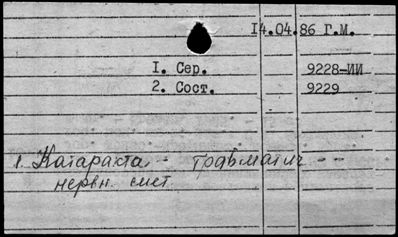 14.04.86 Г.М.
1. Сер. 9228-ИИ
2. Сост. 9229
1. Катаракта - травматич --
нервн. сист.